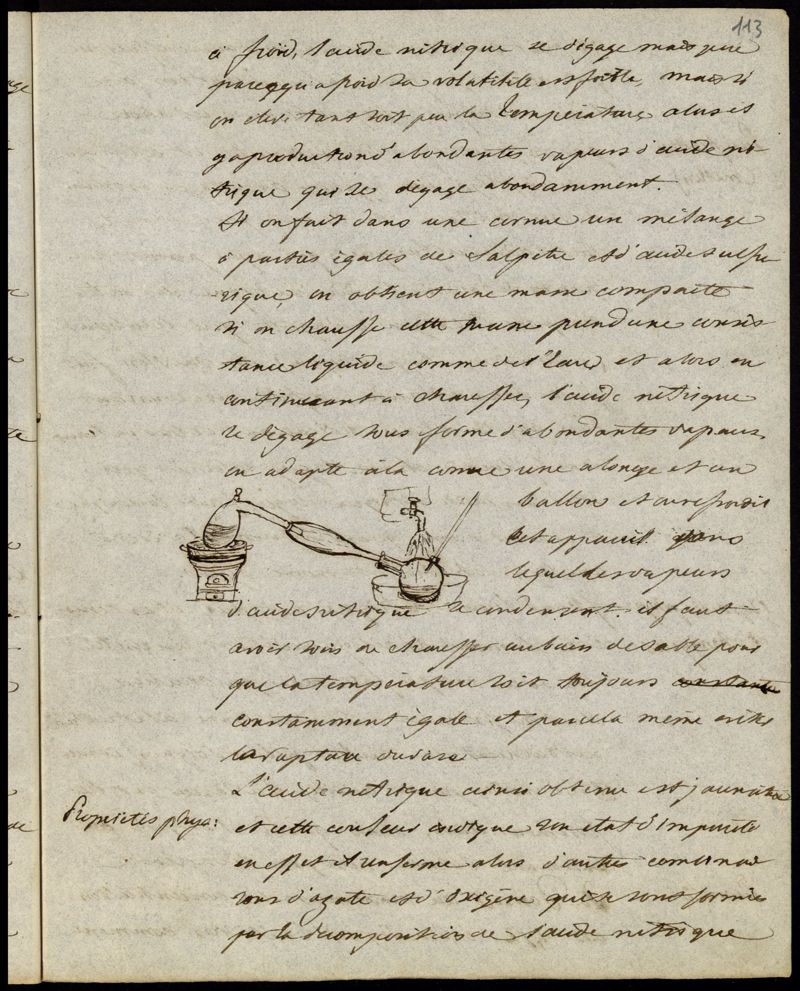 113
à froid, l'acide nitrique se dégage mais peu
parcequ'a froid sa volatilité est foible, mais si
on eleve tant soit peu la température alors il
y a production d'abondantes vapeurs d'acide ni-
trique qui se dégage abondamment.
Si on fait dans une cornue un mélange
à parties égales de Salpêtre et d'acide sulfu
rique, on obtient une masse compacte
si on chauffe cette masse prend une consis
tance liquide comme de l'Eau, et alors en
continuant à chauffer, l'acide nitrique
se dégage sous forme d'abondantes vapeurs.
on adapte à la cornue une alonge et un
ballon et on refroidit
cet appareil dans
lequel les vapeurs
d'acide nitrique se condensent. il faut
avoir soin de chauffer au bain de sable pour
que la température soit toujours constante
constamment égale et par cela même eviter
la rupture du vase
Propriétés phys:
L'acide nitrique ainsi obtenu est jaunâtre
et cette couleur indique son etat d'impureté
en effet il renferme alors d'autres combinai
sons d'azote et d'oxigène qui se sont formées
par la décomposition de l'acide nitrique